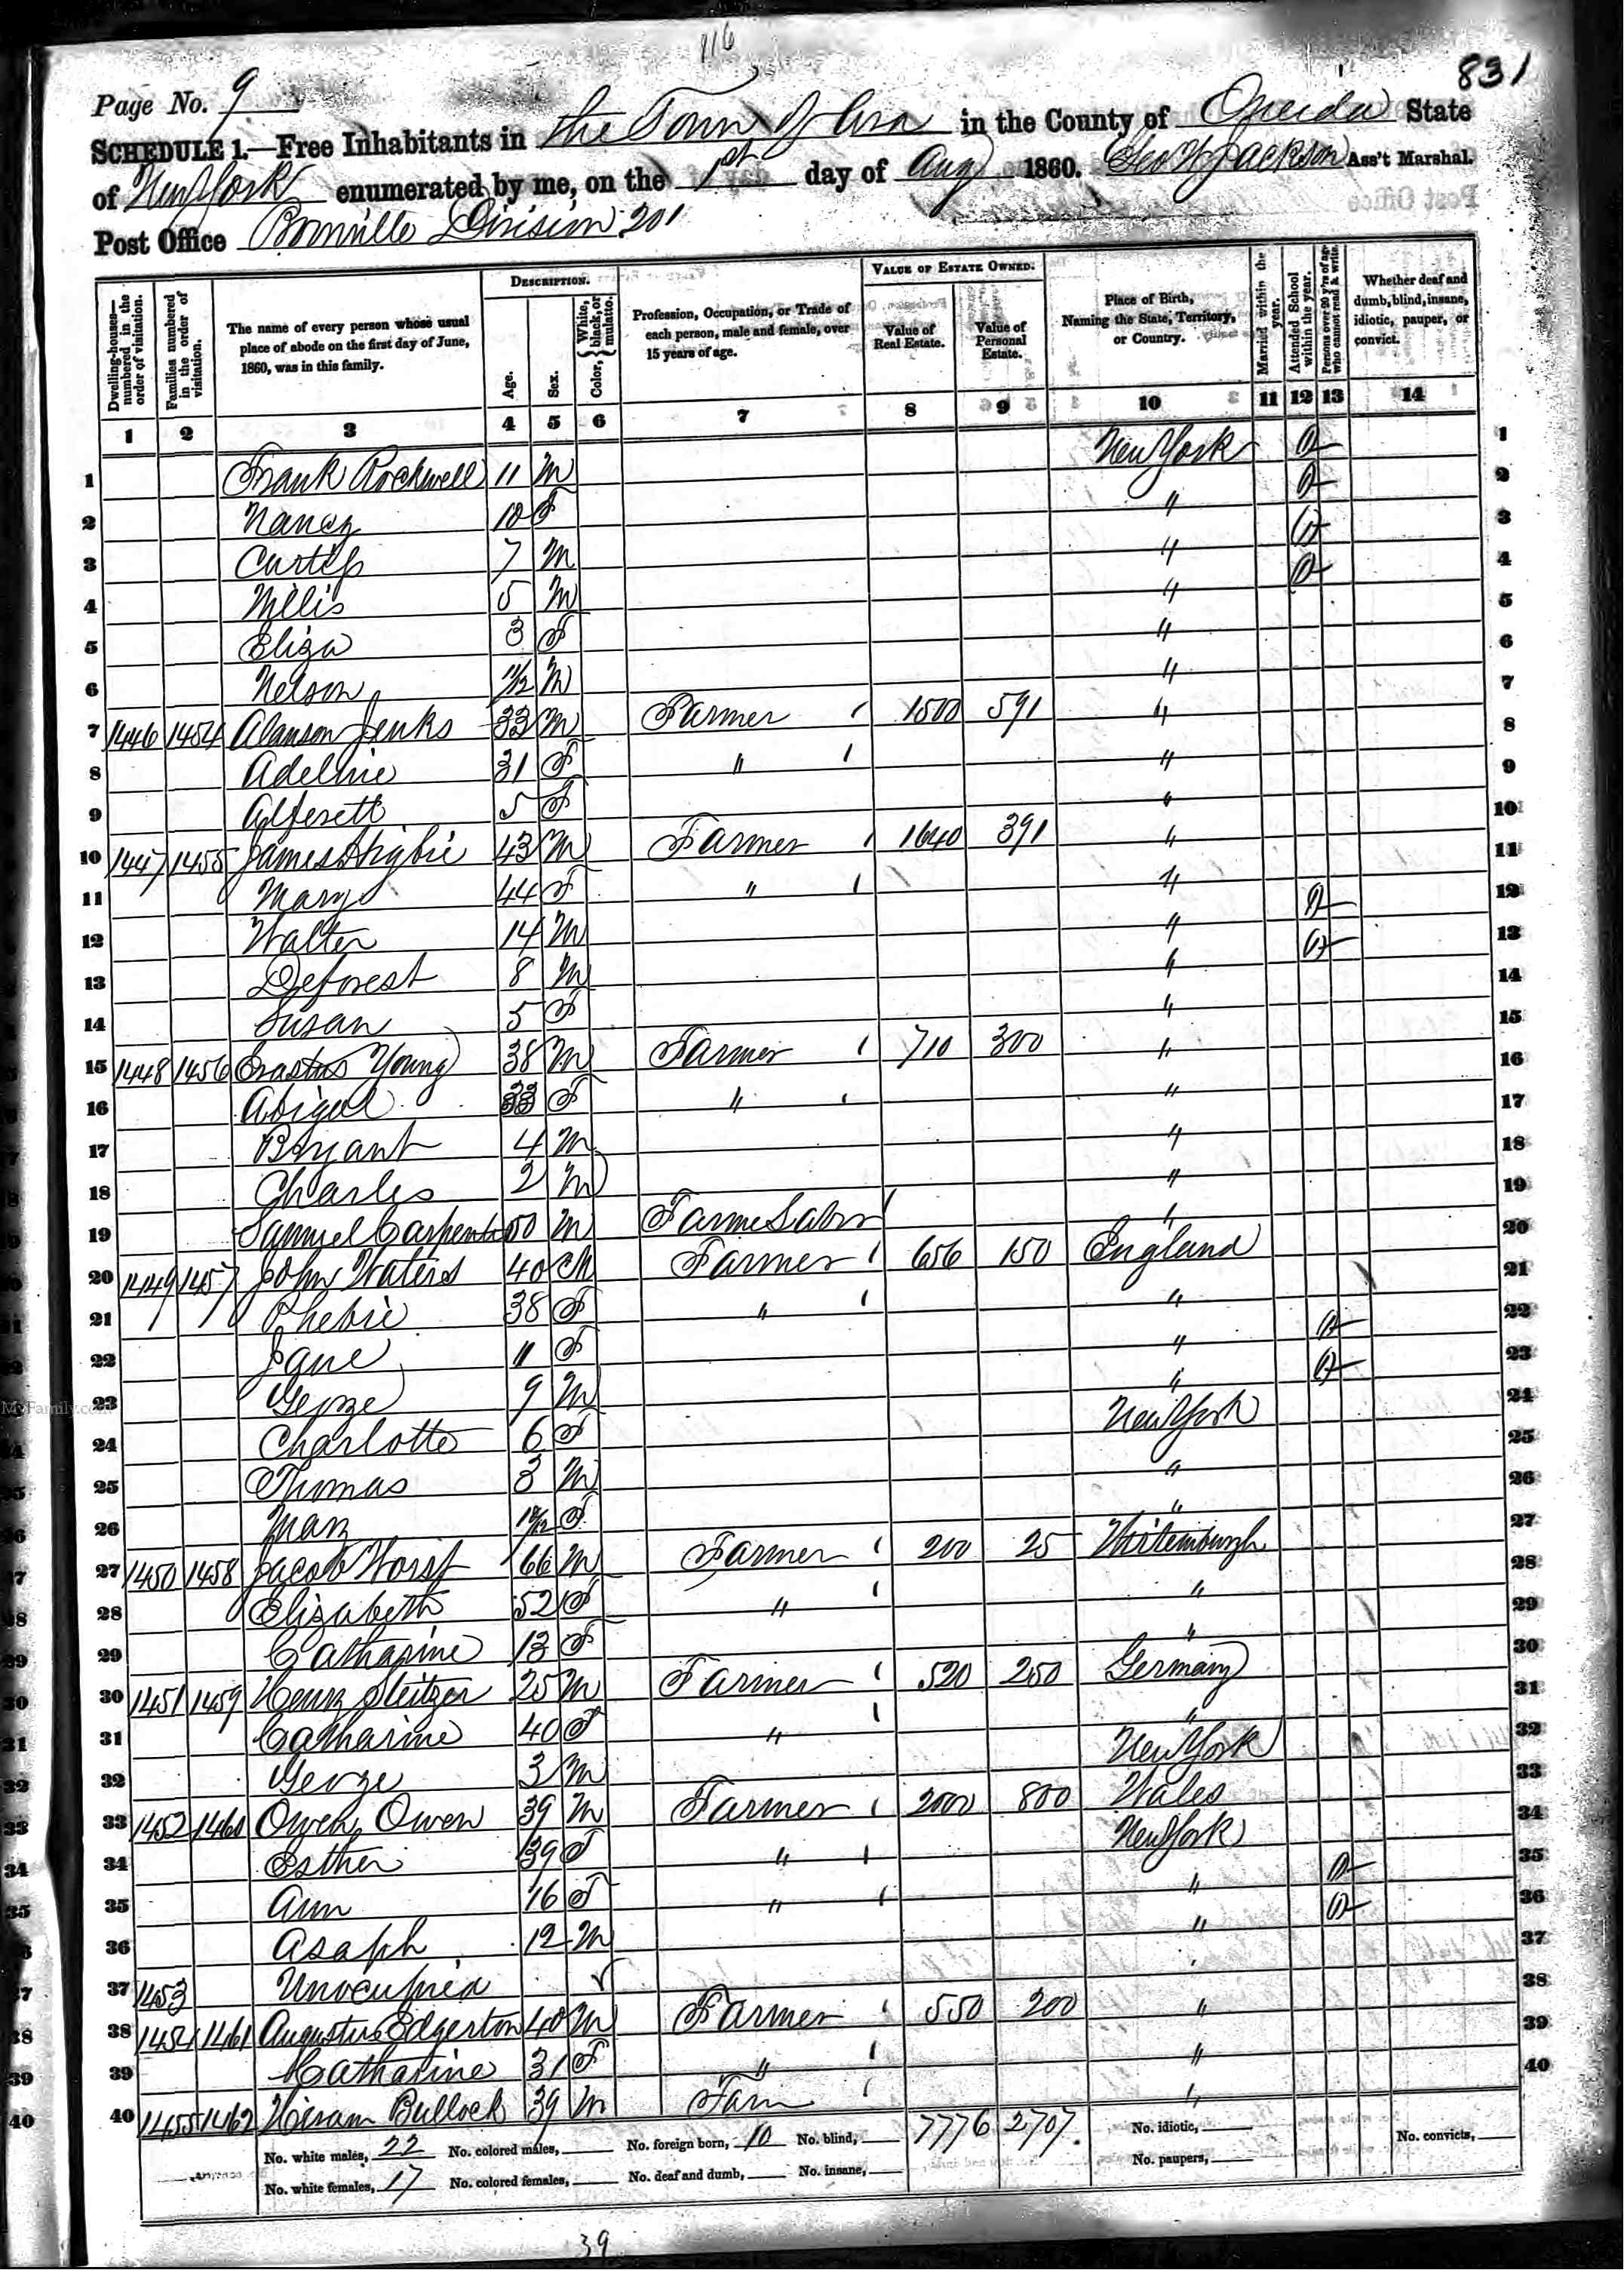 116
831
Page No. 9
SCHEDULE 1.—Free Inhabitants in the Town of Ava in the County of Oneida State
of New York enumerated by me, on the 1st day of Aug 1860. Geo W Jackson Ass't Marshal.
Post Office Bonville Division 201
Dwelling-houses—numbered in the order of visitation.
Families numbered in the order of visitation.
The name of every person whose usual place of abode on the first day of June, 1860, was in this family.
DESCRIPTION.
Age.
Sex.
Color, { White, black, or mulatto.
Profession, Occupation, or Trade of each person, male and female, over 15 years of age.
VALUE OF ESTATE OWNED.
Value of Real Estate.
Value of Personal Estate.
Place of Birth, Naming the State, Territory, or Country.
Married within the year.
Attended School within the year.
Persons over 20 y'rs of age who cannot read & write.
Whether deaf and dumb, blind, insane, idiotic, pauper, or convict.
1 2 3 4 5 6 7 8 9 10 11 12 13 14
1 Frank Rockwell 11 M New York 1
2 Nancy 10 F " 2
3 Curtiss 7 M " 3
4 Willis 5 M " 4
5 Eliza 3 F " 5
6 Nelson M " 6
7 1446 1454 Alanson Jenks 33 M Farmer 1500 591 " 7
8 Adeline 31 F " " 8
9 5 F " 9
10 1447 1455 James Higbie 43 M Farmer 1640 391 " 10
11 Mary 44 F " " 11
12 Walter 14 M " 12
13 Deforest 8 M " 13
14 Susan 5 F " 14
15 1448 1456 Erastus Young 38 M Farmer 710 300 " 15
16 Abigal 33 F " " 16
17 Bryant 4 M " 17
18 Charles 2 M " 18
19 Samuel Carpenter 50 M Farm Labor " 19
20 1449 1457 John Waters 40 M Farmer 656 150 England 20
21 Phebie 38 F " " 21
22 Jane 11 F " 22
23 George 9 M " 23
24 Charlotte 6 F New York 24
25 Thomas 3 M " 25
26 Mary F " 26
27 1450 1458 Jacob Worst 66 M Farmer 200 25 Wirtemburgh 27
28 Elizabeth 52 F " " 28
29 Catharine 13 F " 29
30 1451 1459 Henry Steitzer 25 M Farmer 520 250 Germany 30
31 Catharine 40 F " " 31
32 George 3 M New York 32
33 1452 1460 Owen Owen 39 M Farmer 2000 800 Wales 33
34 Esther 39 F " New York 34
35 Ann 16 F " " 35
36 Asaph 12 M " 36
37 1453 Unocupied 37
38 1454 1461 Augustus Edgerton 40 M Farmer 550 200 " 38
39 Catharine 31 F " " 39
40 1455 1462 Hiram Bullock 39 M Farm " 40
No. white males, 22 No. colored males, No. foreign born, 10 No. blind, 7776 2707. No. idiotic, No. convicts,
No. white females, 17 No. colored females, No. deaf and dumb, No. insane, No. paupers,
39
MyFamily.com